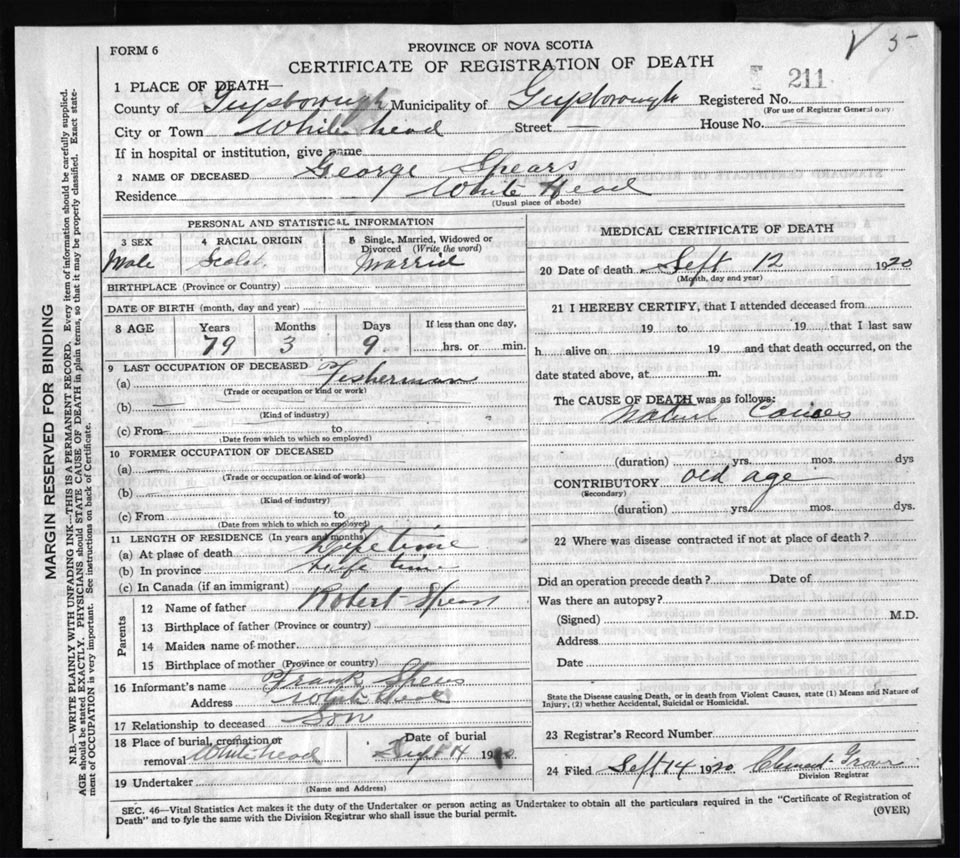 FORM 6
PROVINCE OF NOVA SCOTIA
CERTIFICATE OF REGISTRATION OF DEATH
5
211
1 PLACE OF DEATH—
County of Guysborough Municipality of Guysborough Registered No.
(For use of Registrar General only)
City or Town White head Street — House No.
If in hospital or institution, give name
2 NAME OF DECEASED George Spears
Residence White Head
(Usual place of abode)
PERSONAL AND STATISTICAL INFORMATION
3 SEX Male
4 RACIAL ORIGIN
5 Single, Married, Widowed or Divorced (Write the word) Marrid
BIRTHPLACE (Province or Country)
DATE OF BIRTH (month, day and year)
8 AGE Years 79 Months 3 Days 9 If less than one day, hrs. or min.
9 LAST OCCUPATION OF DECEASED
(a) Fisherman
(Trade or occupation or kind or work)
(b)
(Kind of industry)
(c) From to
(Date from which to which so employed)
10 FORMER OCCUPATION OF DECEASED
(a)
(Trade or occupation or kind of work)
(b)
(Kind of industry)
(c) From to
(Date from which to which so employed)
11 LENGTH OF RESIDENCE (In years and months)
(a) At place of death Life time
(b) In province Life time
(c) In Canada (if an immigrant)
Parents
12 Name of father Robert Spears
13 Birthplace of father (Province or country)
14 Maiden name of mother
15 Birthplace of mother (Province or country)
16 Informant's name Frank Spears
Address White Head
17 Relationship to deceased Son
18 Place of burial, cremation or removal White head Date of burial Sept 14 1920
19 Undertaker
(Name and Address)
MEDICAL CERTIFICATE OF DEATH
20 Date of death Sept 12 1920
(Month, day and year)
21 I HEREBY CERTIFY, that I attended deceased from
19 to 19 that I last saw
h alive on 19 and that death occurred, on the
date stated above, at m.
The CAUSE OF DEATH was as follows:
Naturl Causes
(duration) yrs. mos. dys
CONTRIBUTORY old age
(Secondary)
(duration) yrs. mos. dys.
22 Where was disease contracted if not at place of death?
Did an operation precede death? Date of
Was there an autopsy?
(Signed) M.D.
Address
Date
State the Disease causing Death, or in death from Violent Causes, state (1) Means and Nature of
Injury, (2) whether Accidental, Suicidal or Homicidal.
23 Registrar's Record Number
24 Filed Sept 14 1920
Division Registrar
SEC. 46—Vital Statistics Act makes it the duty of the Undertaker or person acting as Undertaker to obtain all the particulars required in the "Certificate of Registration of
Death" and to fyle the same with the Division Registrar who shall issue the burial permit.
(OVER)
MARGIN RESERVED FOR BINDING
N.B.—WRITE PLAINLY WITH UNFADING INK—THIS IS A PERMANENT RECORD. Every item of information should be carefully supplied.
AGE should be stated EXACTLY. PHYSICIANS should STATE CAUSE OF DEATH in plain terms, so that it may be properly classified. Exact state-
ment of OCCUPATION is very important. See instructions on back of Certificate.